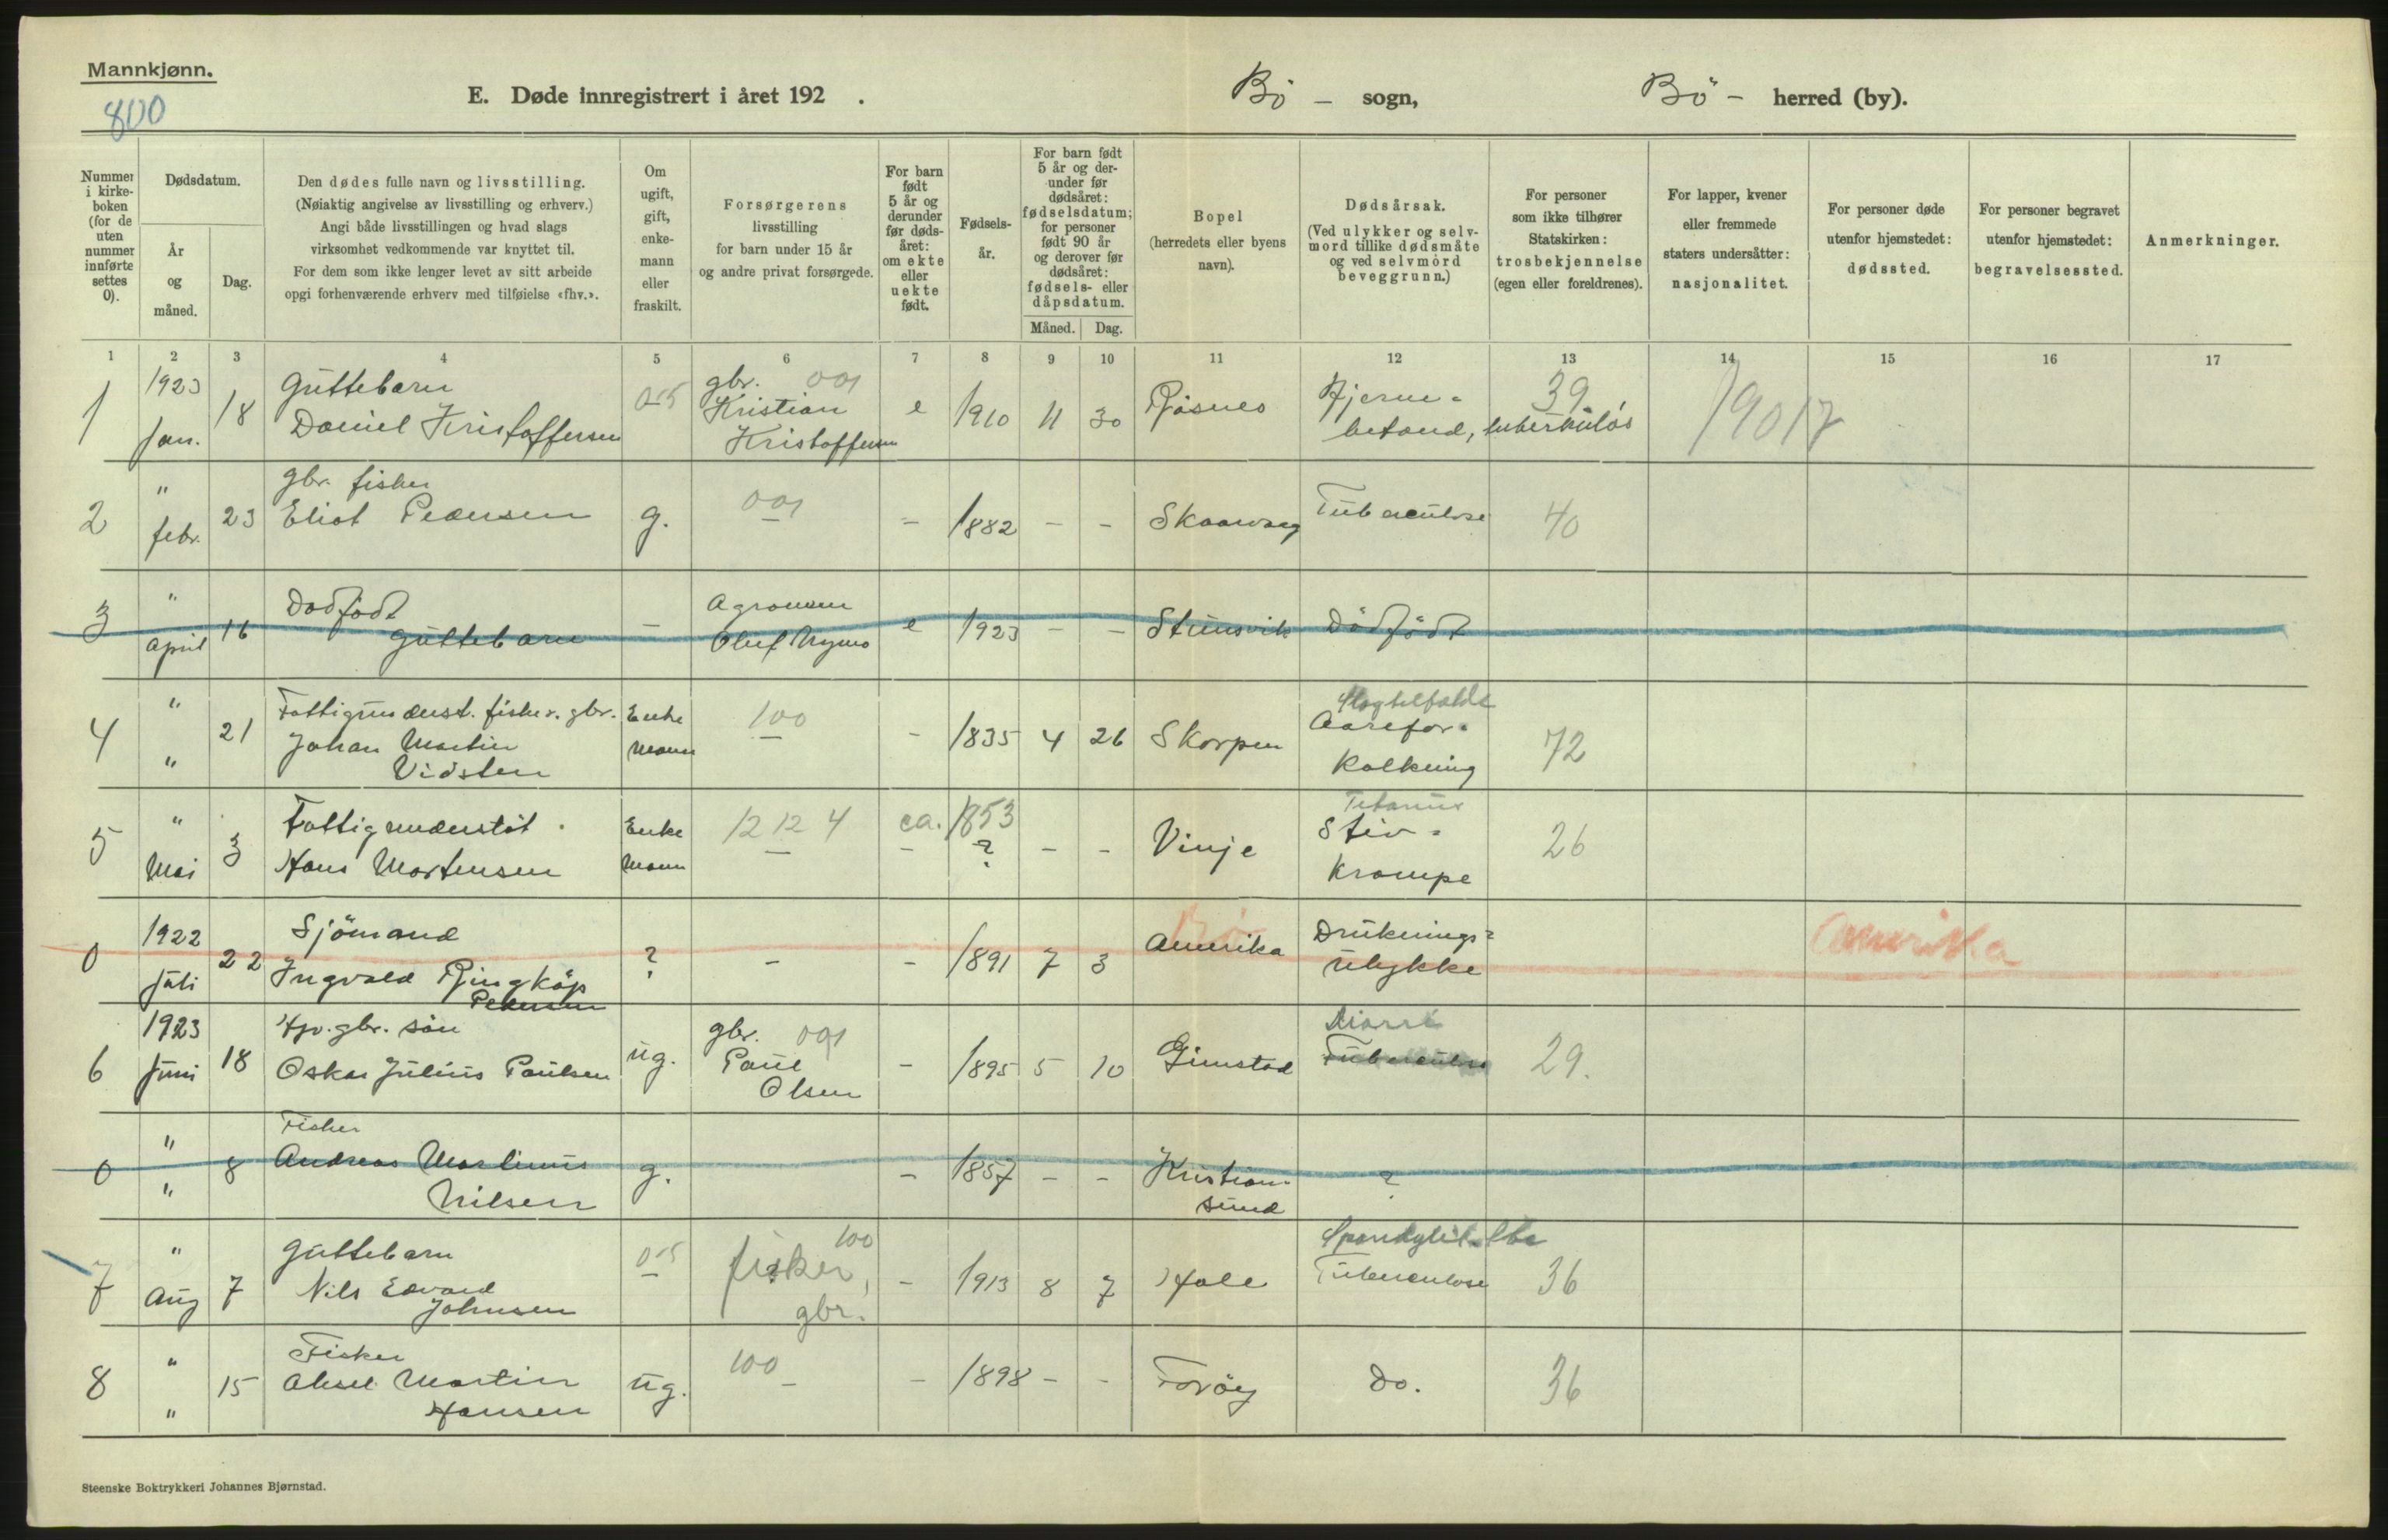 Mannkjønn.
800
E. Døde innregistrert i året 192 .
Bö - sogn,
Bö - herred (by).
Nummer i kirkeboken (for de uten nummer innførte settes 0).
Dødsdatum.
År og måned.
Dag.
Den dødes fulle navn og livsstilling.
(Nøiaktig angivelse av livsstilling og erhverv.)
Angi både livsstillingen og hvad slags
virksomhet vedkommende var knyttet til.
For dem som ikke lenger levet av sitt arbeide
opgi forhenværende erhverv med tilføielse «fhv.».
Om ugift, gift, enkemann eller fraskilt.
Forsørgerens
livsstilling
for barn under 15 år
og andre privat forsørgede.
For barn født 5 år og derunder før dødsåret: om ekte eller uekte født.
Fødselsår.
For barn født 5 år og derunder før dødsåret: fødselsdatum; for personer født 90 år og derover før dødsåret: fødsels- eller dåpsdatum.
Måned. Dag.
Bopel
(herredets eller byens navn).
Dødsårsak.
(Ved ulykker og selvmord tillike dødsmåte og ved selvmord beveggrunn.)
For personer som ikke tilhører Statskirken: trosbekjennelse (egen eller foreldrenes).
For lapper, kvener eller fremmede staters undersåtter: nasjonalitet.
For personer døde utenfor hjemstedet: dødssted.
For personer begravet utenfor hjemstedet: begravelsessted.
Anmerkninger.
1 2 3 4 5 6 7 8 9 10 11 12 13 14 15 16 17
1 1923 Jan. 18 Guttebarn Daniel Kristoffersen gbr. 001 Kristian Kristoffersen e 1910 11 30 Rösnes Hjerne- betend, tuberkulös 39
2 " febr. 23 gbr. fisker Eliot Pedersen g. 001 - 1882 - - Tuberculose 40
3 " April 16 Dødfödt Guttebarn - Agronom Oluf e 1923 - - Dödfödt
4 " " 21 Fattigunderst. fisker. gbr. Johan Martin Vidsten Enke mann 100 - 1835 4 26 Skorpen Slagtilfælde Aarefor- kalkning 72
5 " Mai 3 Fattigunderstöt. Hans Mortensen Enke mann 12 12 4 - ca. 1853 ? - - Vinje Tetanus Stiv- krampe 26
0 1922 Juli 22 Sjömand Ingvald Ringköp Pedersen ? - - 1891 7 3 Bö Amerika Druknings- ulykke Amerika
6 1923 Juni 18 gbr. sön Oskar Julius Paulsen ug. gbr. 001 Paul Olsen - 1895 5 10 Gimstad Tuberculose 29.
0 " " 8 Fisker Andreas Martinus Nilsen g. - 1857 - - Kristian- sund ?
7 " Aug 7 Guttebarn Nils Edvard Johnsen 100 fisker, gbr. - 1913 8 7 Hole Tuberculose 36
8 " " 15 Fisker Aksel Martin Hansen ug. 100 - - 1898 - - Foröy Do. 36
Steenske Boktrykkeri Johannes Bjørnstad.